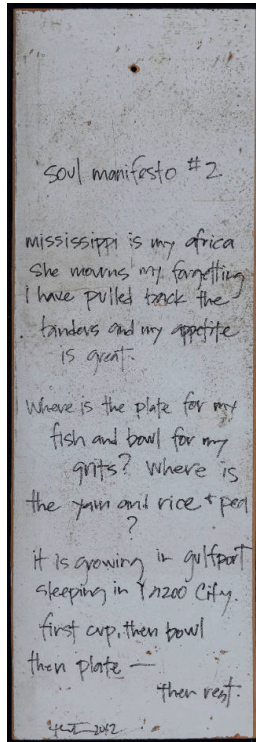 soul manifesto #2
mississippi is my africa
she mourns my forgetting
I have pulled back the
and my appetite
is great.
Where is the plate for my
fish and bowl for my
grits? Where is
the yam and rice + pea
?
it is growing in gulfport
sleeping in Yazoo City.
first cup, then bowl
then plate —
then rest.
2012